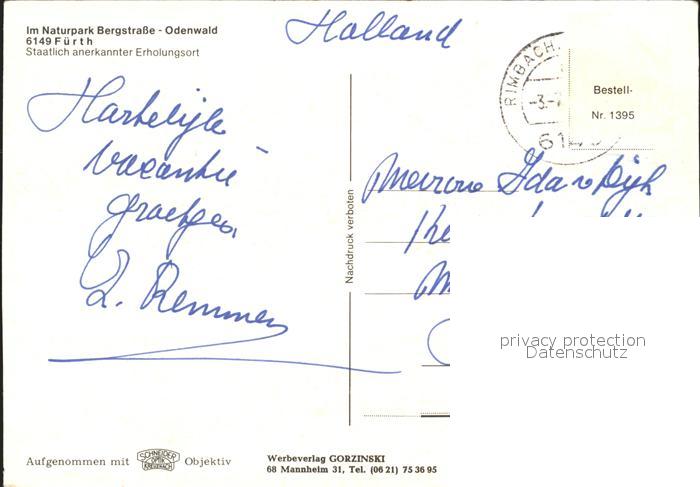 Im Naturpark Bergstraße - Odenwald
6149 Fürth
Staatlich anerkannter Erholungsort
Holland
RIMBACH
-3.-7
61
Bestell-
Nr. 1395
Hartelijke
vacantie
groetjes,
Remmen
Mevrouw Ida v Dijk
Nachdruck verboten
privacy protection
Datenschutz
Aufgenommen mit
SCHNEIDER
OPTIK
KREUZNACH
Objektiv
Werbeverlag GORZINSKI
68 Mannheim 31, Tel. (06 21) 75 36 95